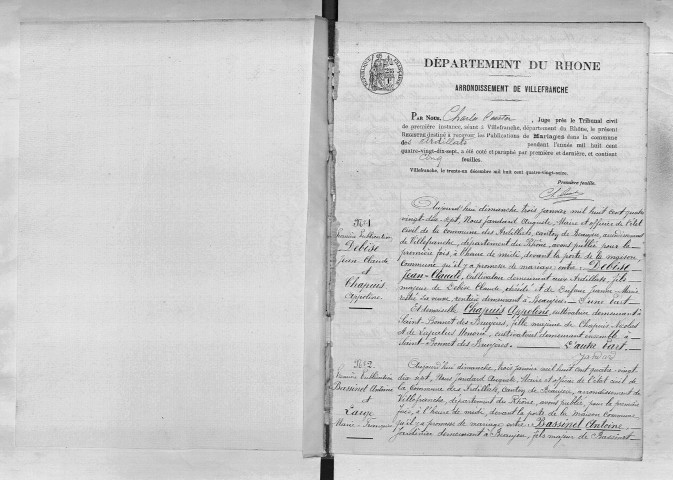 DÉPARTEMENT DU RHONE
ARRONDISSEMENT DE VILLEFRANCHE
PAR NOUS, Charles, Juge près le Tribunal civil
de première instance, séant à Villefranche, département du Rhône, le présent
REGISTRE destiné à recevoir les Publications de Mariages dans la commune
des Ardillats pendant l'année mil huit cent
quatre-vingt-dix-sept, a été coté et paraphé par première et dernière, et contient
cinq feuilles.
Villefranche, le trente-un décembre mil huit cent quatre-vingt-seize.
Première feuille.
N° 1
Première Publication
Debise
Jean Claude
et
Chapuis
Appoline
Aujourd'hui dimanche trois janvier mil huit cent quatre
vingt-dix-sept, Nous Jandard Auguste, Maire et officier de l'état
civil de la commune des Ardillats, canton de Beaujeu, arrondissement
de Villefranche, département du Rhône, avons publié pour la
première fois, à l'heure de midi, devant la porte de la maison
Commune qu'il y a promesse de mariage entre Debise
Jean-Claude, cultivateur demeurant aux Ardillats, fils
majeur de Debise Claude, décédé et de Jeanne Marie
sa veuve, rentière demeurant à Beaujeu. D'une part
Et demoiselle Chapuis Appoline, cultivatrice demeurant à
Saint-Bonnet des Bruyères, fille majeure de Chapuis Nicolas
et de, cultivateurs demeurant ensemble à
Saint-Bonnet des Bruyères. D'autre part.
Jandard
N° 2
Première Publication
Bassinet Antoine
et
Large
Marie Françoise
Aujourd'hui dimanche, trois janvier mil huit cent quatre-vingt
dix sept, Nous Jandard Auguste, Maire et officier de l'état civil de
la Commune des Ardillats, canton de Beaujeu, arrondissement de
Villefranche, département du Rhône, avons publié pour la première
fois, à l'heure de midi, devant la porte de la maison commune
qu'il y a promesse de mariage entre Bassinet Antoine
jardinier demeurant à Beaujeu, fils majeur de Bassinet